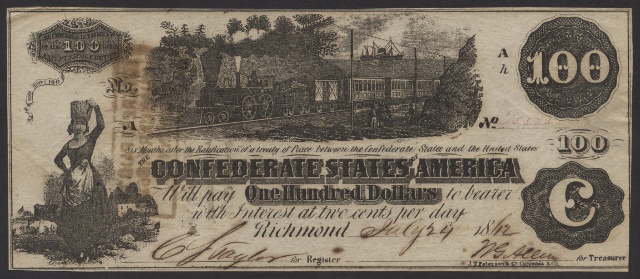 100
A
h
100
No.
A
No
Six Months after the Ratification of a treaty of Peace between the Confederate States and the United States
100
THE CONFEDERATE STATES OF AMERICA
Will pay One Hundred Dollars to bearer
with Interest at two cents per day
C
Richmond July 24 1862
for Register
for Treasurer